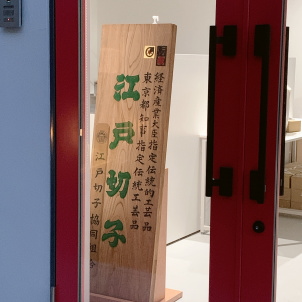 経済産業大臣指定伝統的工芸品
東京都知事指定伝統工芸品
江戸切子
江戸切子協同組合